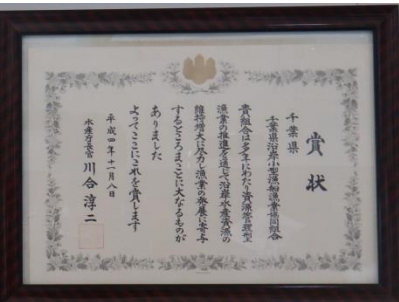 賞状
千葉県
千葉県沿岸小型漁船漁業協同組合
貴組合は多年にわたり資源管理型
漁業の推進を通じて沿岸水産資源の
維持増大に尽力し漁業の発展に寄与
するところまことに大なるものが
ありました
よってここにこれを賞します
平成四年十一月八日
水産庁長官 川合淳二